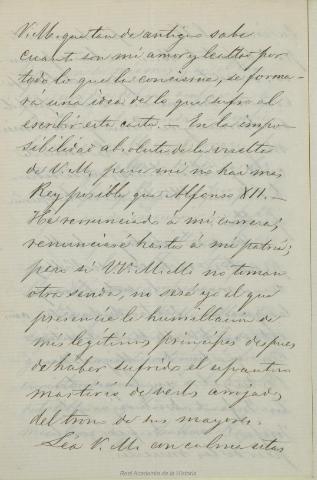 V. M. que tan de antiguo sabe
cuant son mi amor y lealtad por
todo lo que la concierne, se forma-
rá una idea de lo que sufro al
escribir esta carta. — En la impo-
sibilidad absoluta de la vuelta
de V. M., para mí no hai mas
Rey posible que Alfonso XII. —
He renunciado á mi carrera;
renunciaré hasta á mi patria;
pero si VV. MM. no toman
otra senda, no seré yo el que
presencie la humillacion de
mis legítimos príncipes despues
de haber sufrido el
martirio de verlos arrojados
del trono de sus mayores.
Lea V. M. con calma estas
Real Academia de la Historia